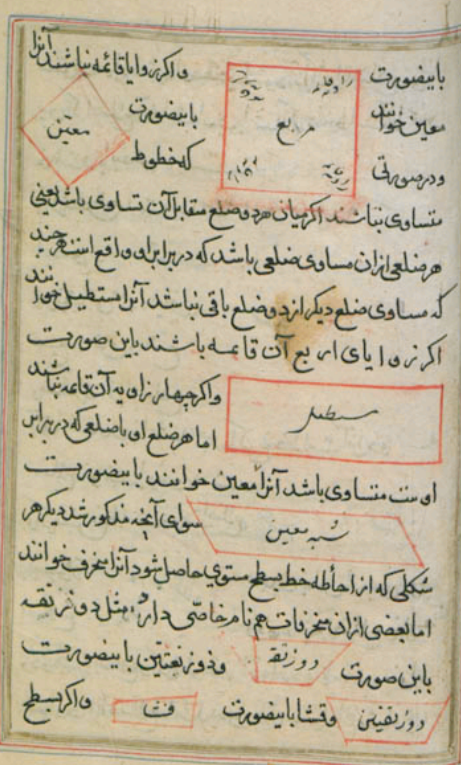 باینصورت زاویه قائمه زاویه قائمه و اکر زوایا قائمه نباشند آنرا
معین خوانند مربع باینصورت معین
و در صورتی زاویه قائمه زاویه قائمه که خطوط
متساوی نباشند اکر میان هر دو ضلع متقابل آن تساوی باشد یعنی
هر ضلعی ازان مساوی ضلعی باشد که در برابر او واقع است هرچند
که مساوی ضلع دیکر از دو ضلع باقی نباشد آنرا مستطیل خوانند
اکر زوایای اربع آن قائمه باشند باین صورت
مستطیل و اکر چهار زاویه آن قائمه نباشند
اما هر ضلع او با ضلعی که در برابر
اوست متساوی باشد آنرا معین خوانند باینصورت
شبه معین سوای آنچه مذکور شد دیکر هر
شکلی که از احاطه خط بسطح مستوی حاصل شود آنرا منحرف خوانند
اما بعضی ازان منحرفات هم نام خاصی دارد مثل دوزنقه
باین صورت دوزنقه و ذوزنقتین باینصورت
دوزنقتین و قثا باینصورت قثا و اکر بسطح